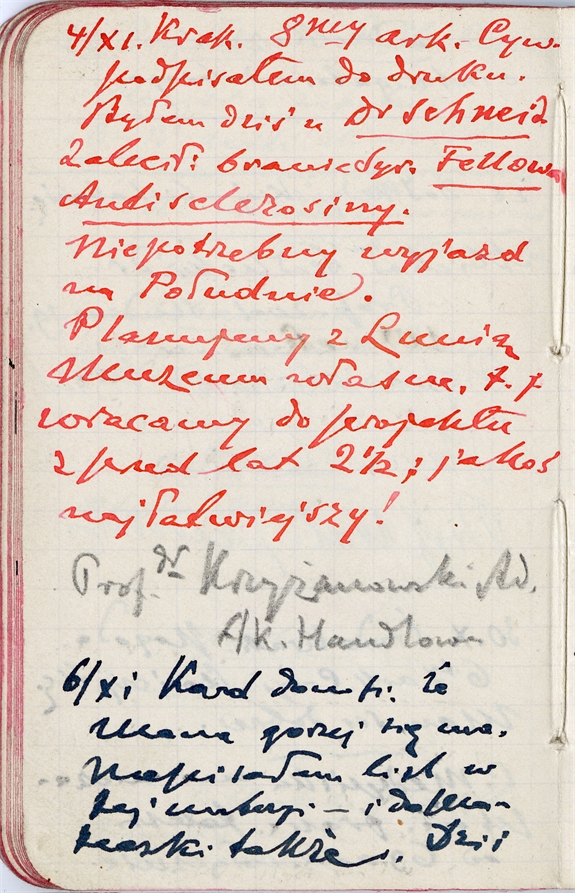 4/XI. Krak. 8my ark. Cyw.
podpisałem do druku.
Byłem dziś u Dr Schneid
Zalecił: branie dyr. Fellowa
Antisclerosiny.
Niepotrzebny wyjazd
na Południe.
Planujemy z Lunią
Muzeum własne, t. j
wracamy do projektu
z przed lat 2½; jakoś
najłatwiejszy!
Prof. dr Krzyżanowski Ad.
A/K. Handlowa
6/XI Kard że
Mama gorzej się ma.
Napisałem list w
tej – i do Ma-
także. Dziś